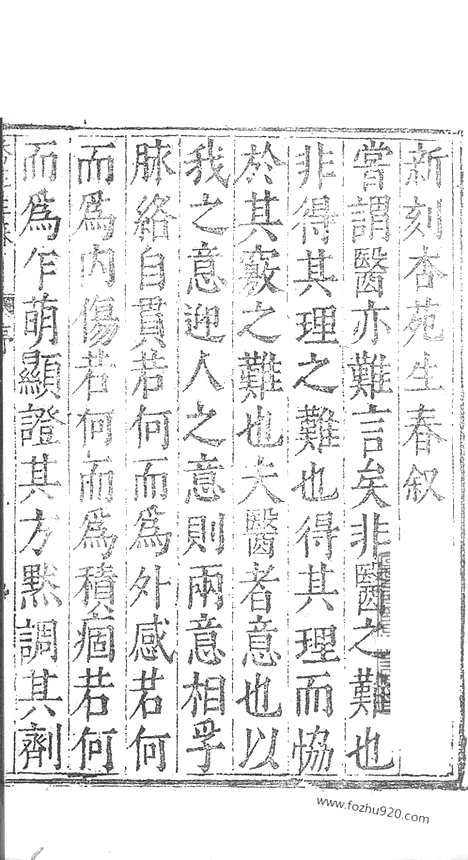 新刻杏苑生春叙
嘗謂醫亦難言矣非醫之難也
非得其理之難也得其理而恊
於其竅之難也夫醫者意也以
我之意迎人之意則兩意相孚
脉絡自貫若何而爲外感若何
而爲内傷若何而爲積痼若何
而爲乍萌顯證其方黙調其劑
www.fozhu920.com